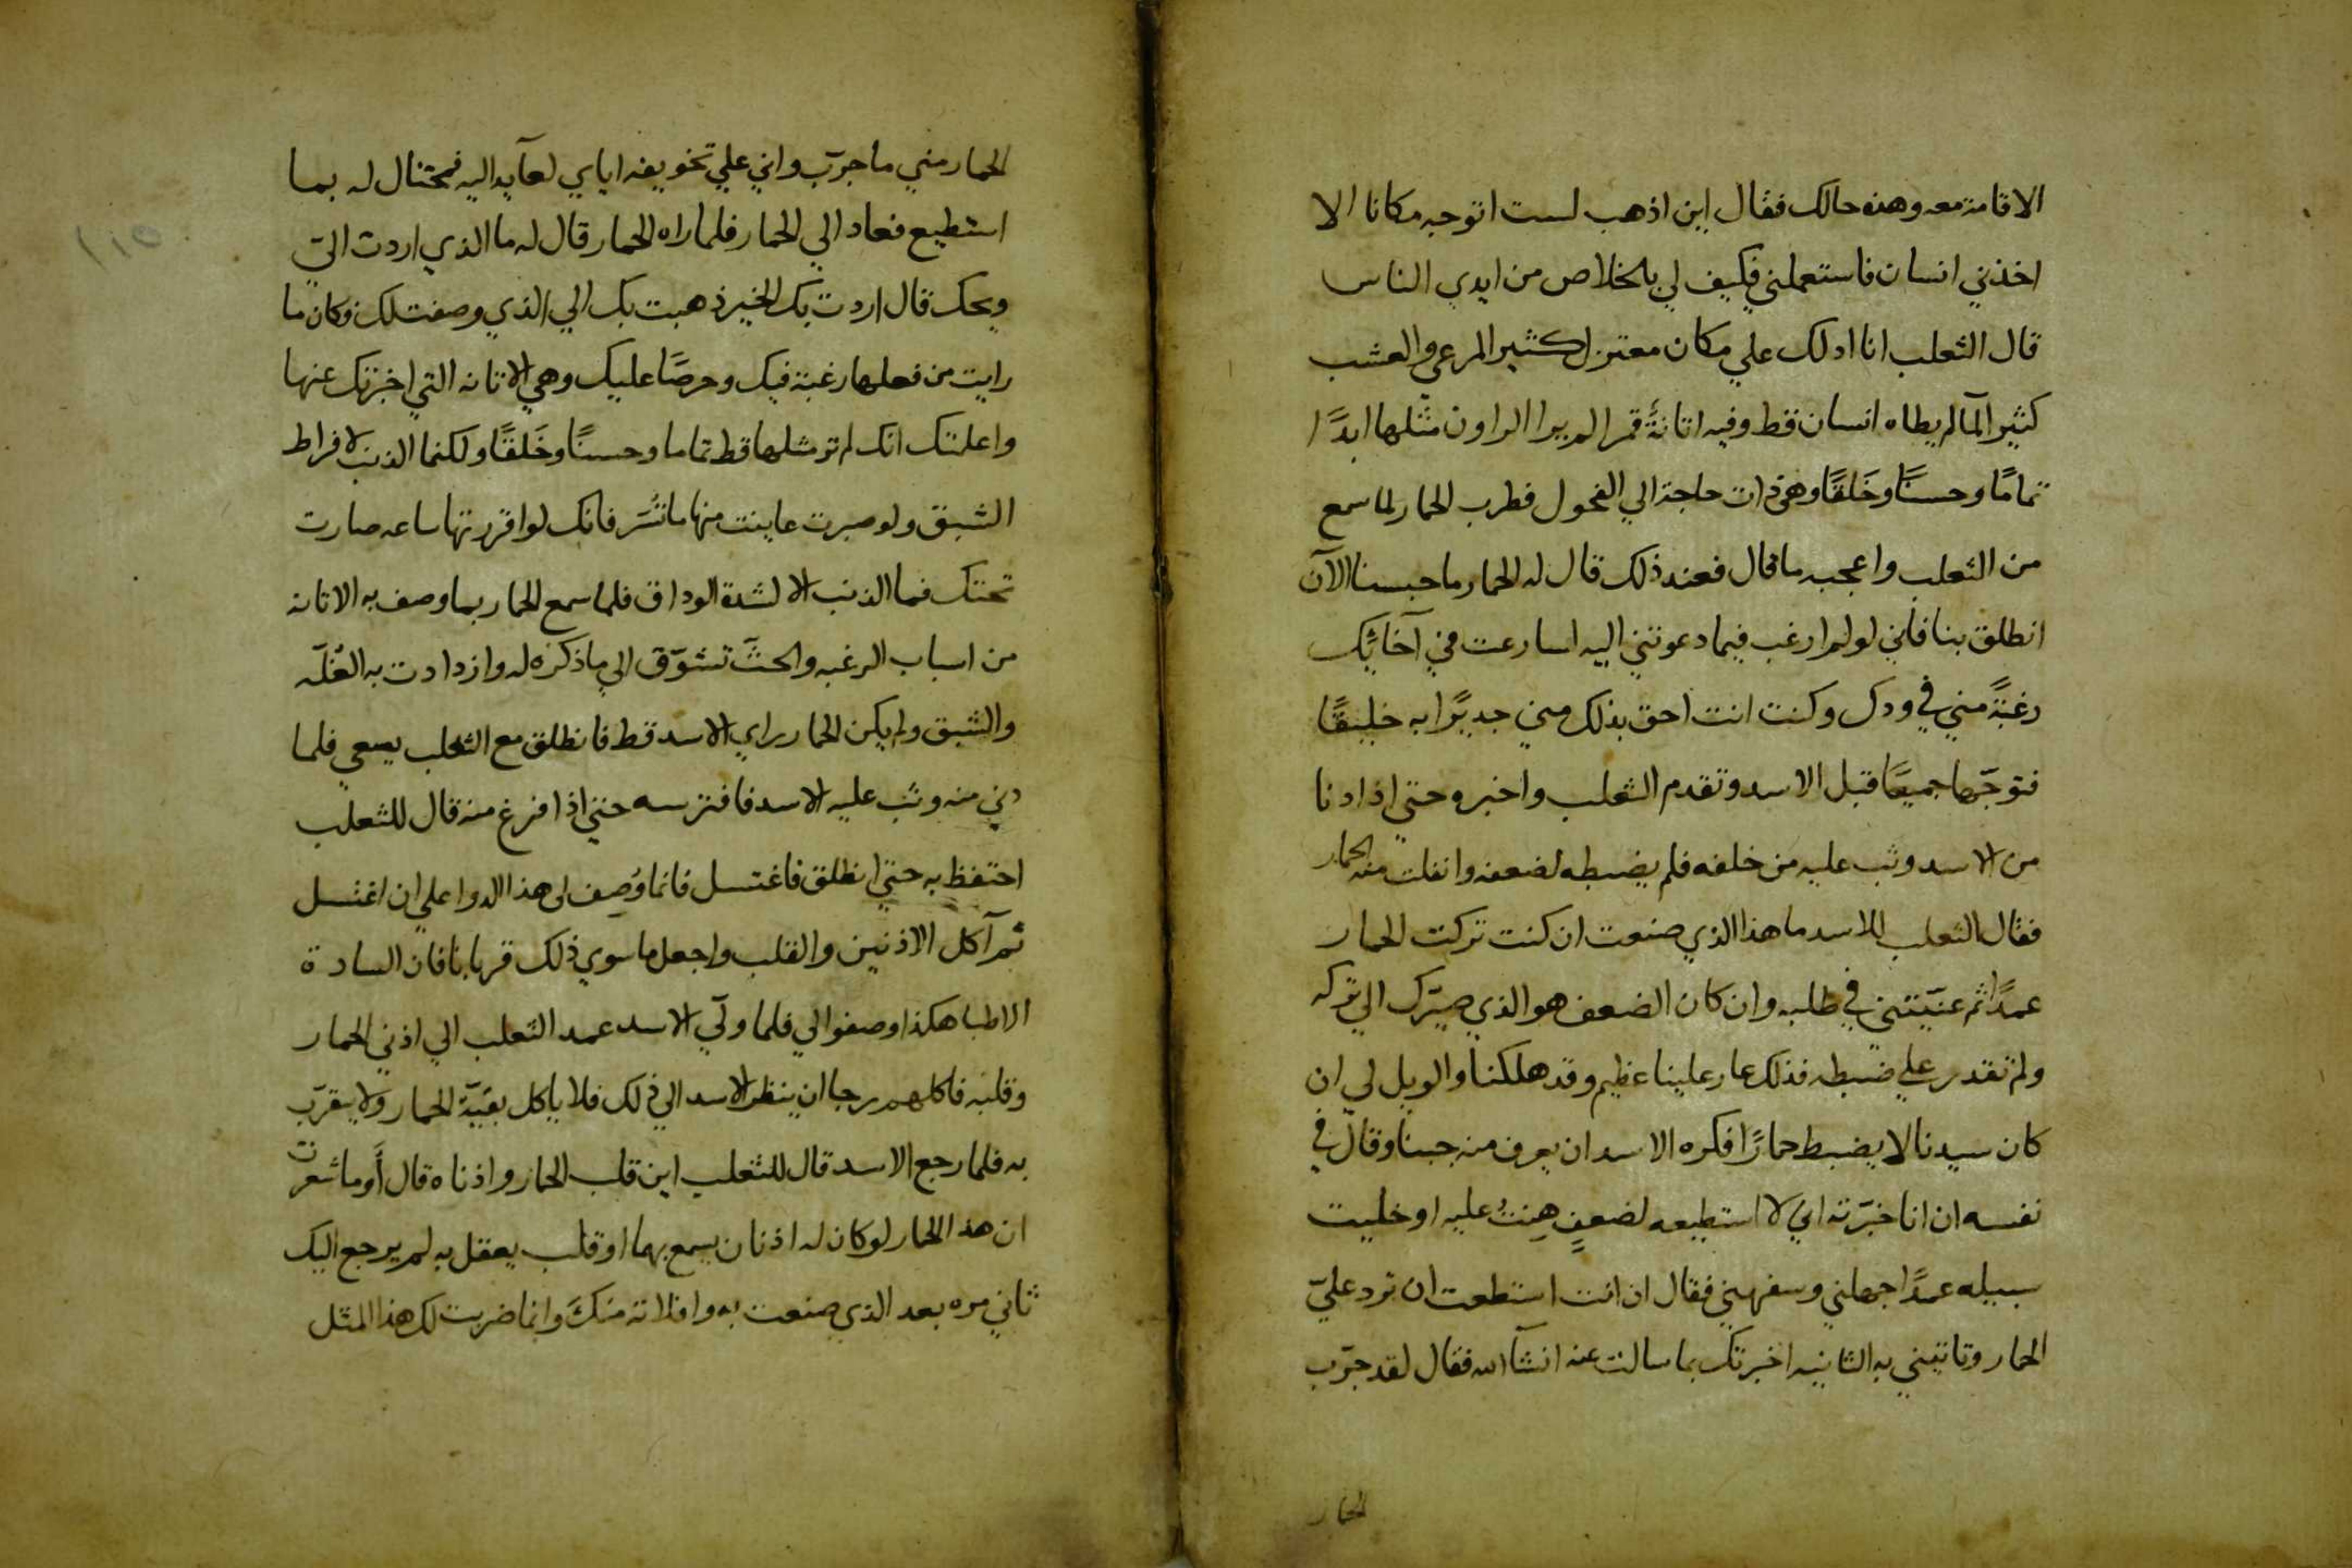 الاقامة معه وهذه حالك فقال اين اذهب لست اتوجه مكانا الا
اخذني انسان فاستعملني فكيف لي بالخلاص من ايدي الناس
قال الثعلب انا ادلك علي مكان معتزل كثير المرعي والعشب
كثير المآ لم يطاه انسان قط وفيه اتانةً قمرا لم ير الراون مثلها ابدًا
تمامًا وحسنًا وخَلقًا وهي ذات حاجة الي الفحول فطرب الحمار لما سمع
من الثعلب واعجبه ما قال فعند ذلك قال له الحمار ما حبسنا الآن
انطلق بنا فاني لو لم ارغب فيما دعوتني اليه لسارعت في آخائك
رغبةً مني في ودك وكنت انت احق بذلك مني جديرًا به خليقًا
فتوجّها جميعًا قبل الاسد وتقدم الثعلب واخبره حتي اذا دنا
من الاسد وثب عليه من خلفه فلم يضبطه لضعفه وانفلت منه الحمار
فقال الثعلب للاسد ما هذا الذي صنعت ان كنت تركت الحمار
عمدًا ثم عنّيتني في طلبه وان كان الضعف هو الذي صيّرك الي تركه
ولم تقدر علي ضبطه فذلك عار علينا عظيم وقد هلكنا والويل لي ان
كان سيدنا لا يضبط حمارًا فكره الاسد ان يعرف منه جبنا وقال في
نفسه ان انا خبّرته اني لا استطيعه لضعفٍ هِنتُ عليه او خليت
سبيله عمدًا جهلني وسفهني فقال ان انت استطعت ان ترد عليّ
الحمار وتاتيني به الثانيه اخبرتك بما سالت عنه انشآ الله فقال لقد جرّب
الحمار
الحمار مني ما جرّب واني علي تخويفه اياي لعآيد اليه فمحتال له بما
استطيع فعاد الي الحمار فلما راه الحمار قال له ما الذي اردت اليّ
ويحك قال اردت بك الخير ذهبت بك الي الذي وصفت لك وكان ما
رايت من فعلها رغبة فيك وحرصًا عليك وهي الاتانه التي اخبرتك عنها
واعلمتك انك لم تر مثلها قط تماما وحسنًا وخَلقًا ولكنما الذنب لافراط
الشبق ولو صبرت عاينت منها ما تُسَر فانك لو اقررتها ساعه صارت
تحتك فما الذنب الا لشدة الوداق فلما سمع الحمار بما وصف به الاتانه
من اسباب الرغبه والحثّ تشوّق الي ما ذكره له وازدادت به الغُلّه
والشبق ولم يكن الحمار راي الاسد قط فانطلق مع الثعلب يسعي فلما
دني منه وثب عليه الاسد فافترسه حتي اذا فرغ منه قال للثعلب
احتفظ به حتي انطلق فاغتسل فانما وُصِف لي هذا الدوا علي ان اغتسل
ثم آكل الاذنين والقلب واجعل ما سوي ذلك قربانا فان السادة
الاطبا هكذا وصفوا لي فلما ولّي الاسد عمد الثعلب الي اذني الحمار
وقلبه فاكلهم رجا ان ينظر الاسد الي ذلك فلا ياكل بقيّة الحمار ولا يتقرّب
به فلما رجع الاسد قال للثعلب اين قلب الحمار واذناه قال أوما شعرت
ان هذا الحمار لو كان له اذنان يسمع بهما او قلب يعقل به لم يرجع اليك
ثاني مره بعد الذي صنعت به وافلاته منكَ وانما ضربت لك هذا المثل